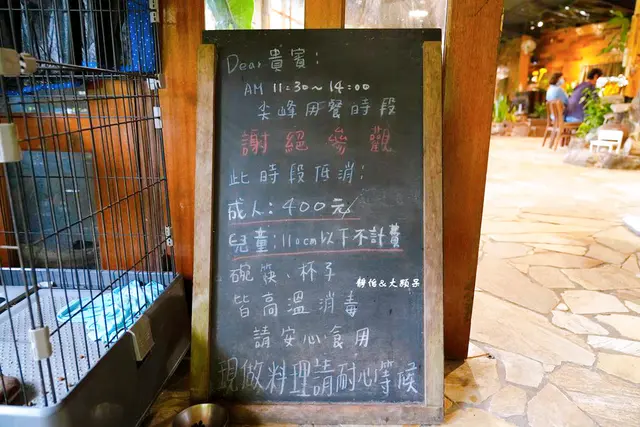 Dear 貴賓:
AM 11:30～14:00
尖峰用餐時段
謝絕參觀
此時段低消:
成人:400元/
兒童:110cm以下不計費
碗筷、杯子
靜怡&大顆呆
皆高溫消毒
請安心食用
現做料理請耐心等候